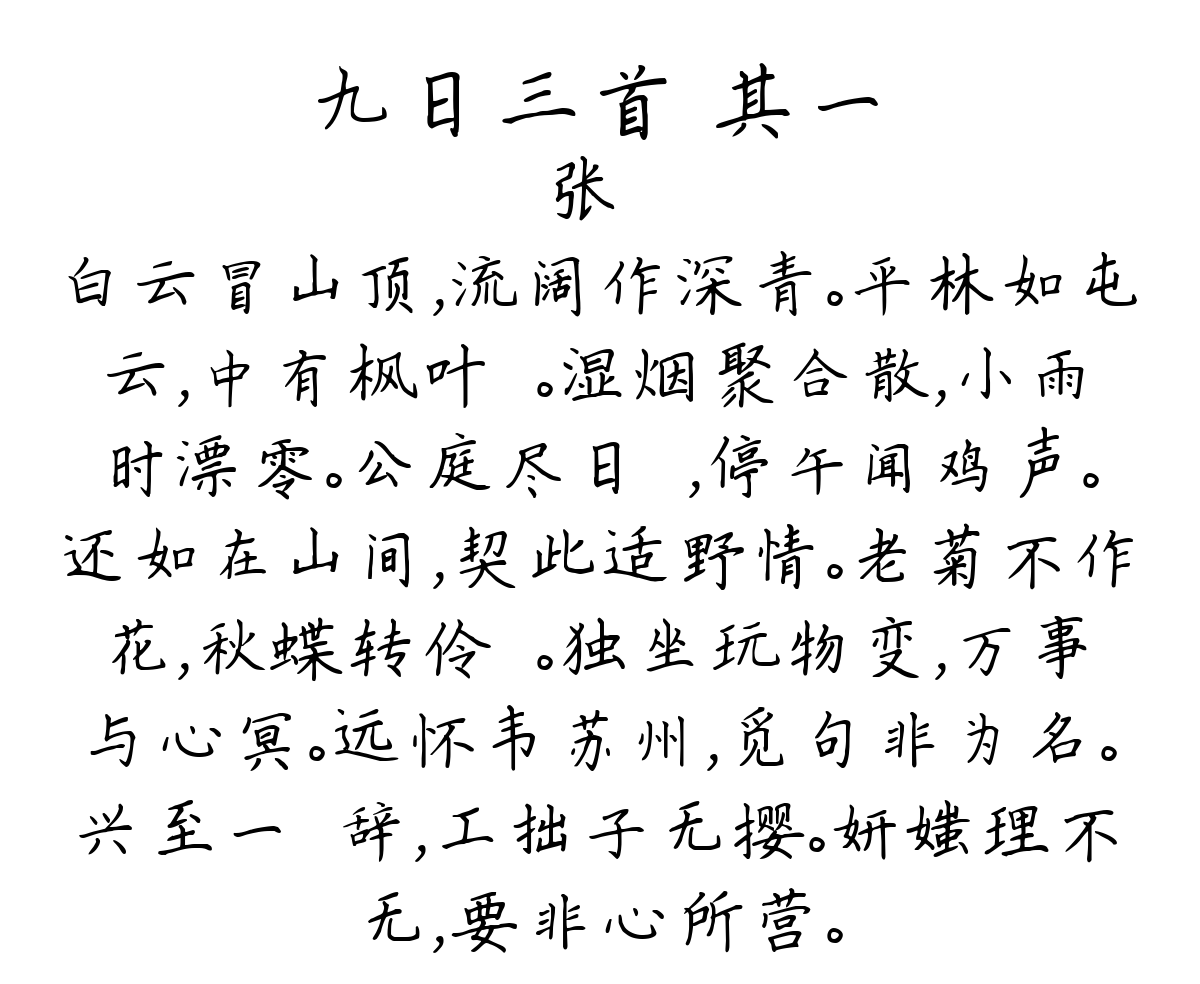 九日三首 其一
张
白云冒山顶,流阔作深青。平林如屯
云,中有枫叶 。湿烟聚合散,小雨
时漂零。公庭尽日 ,停午闻鸡声。
还如在山间,契此适野情。老菊不作
花,秋蝶转伶 。独坐玩物变,万事
与心冥。远怀韦苏州,觅句非为名。
兴至一 辞,工拙子无撄。妍媸理不
无,要非心所营。